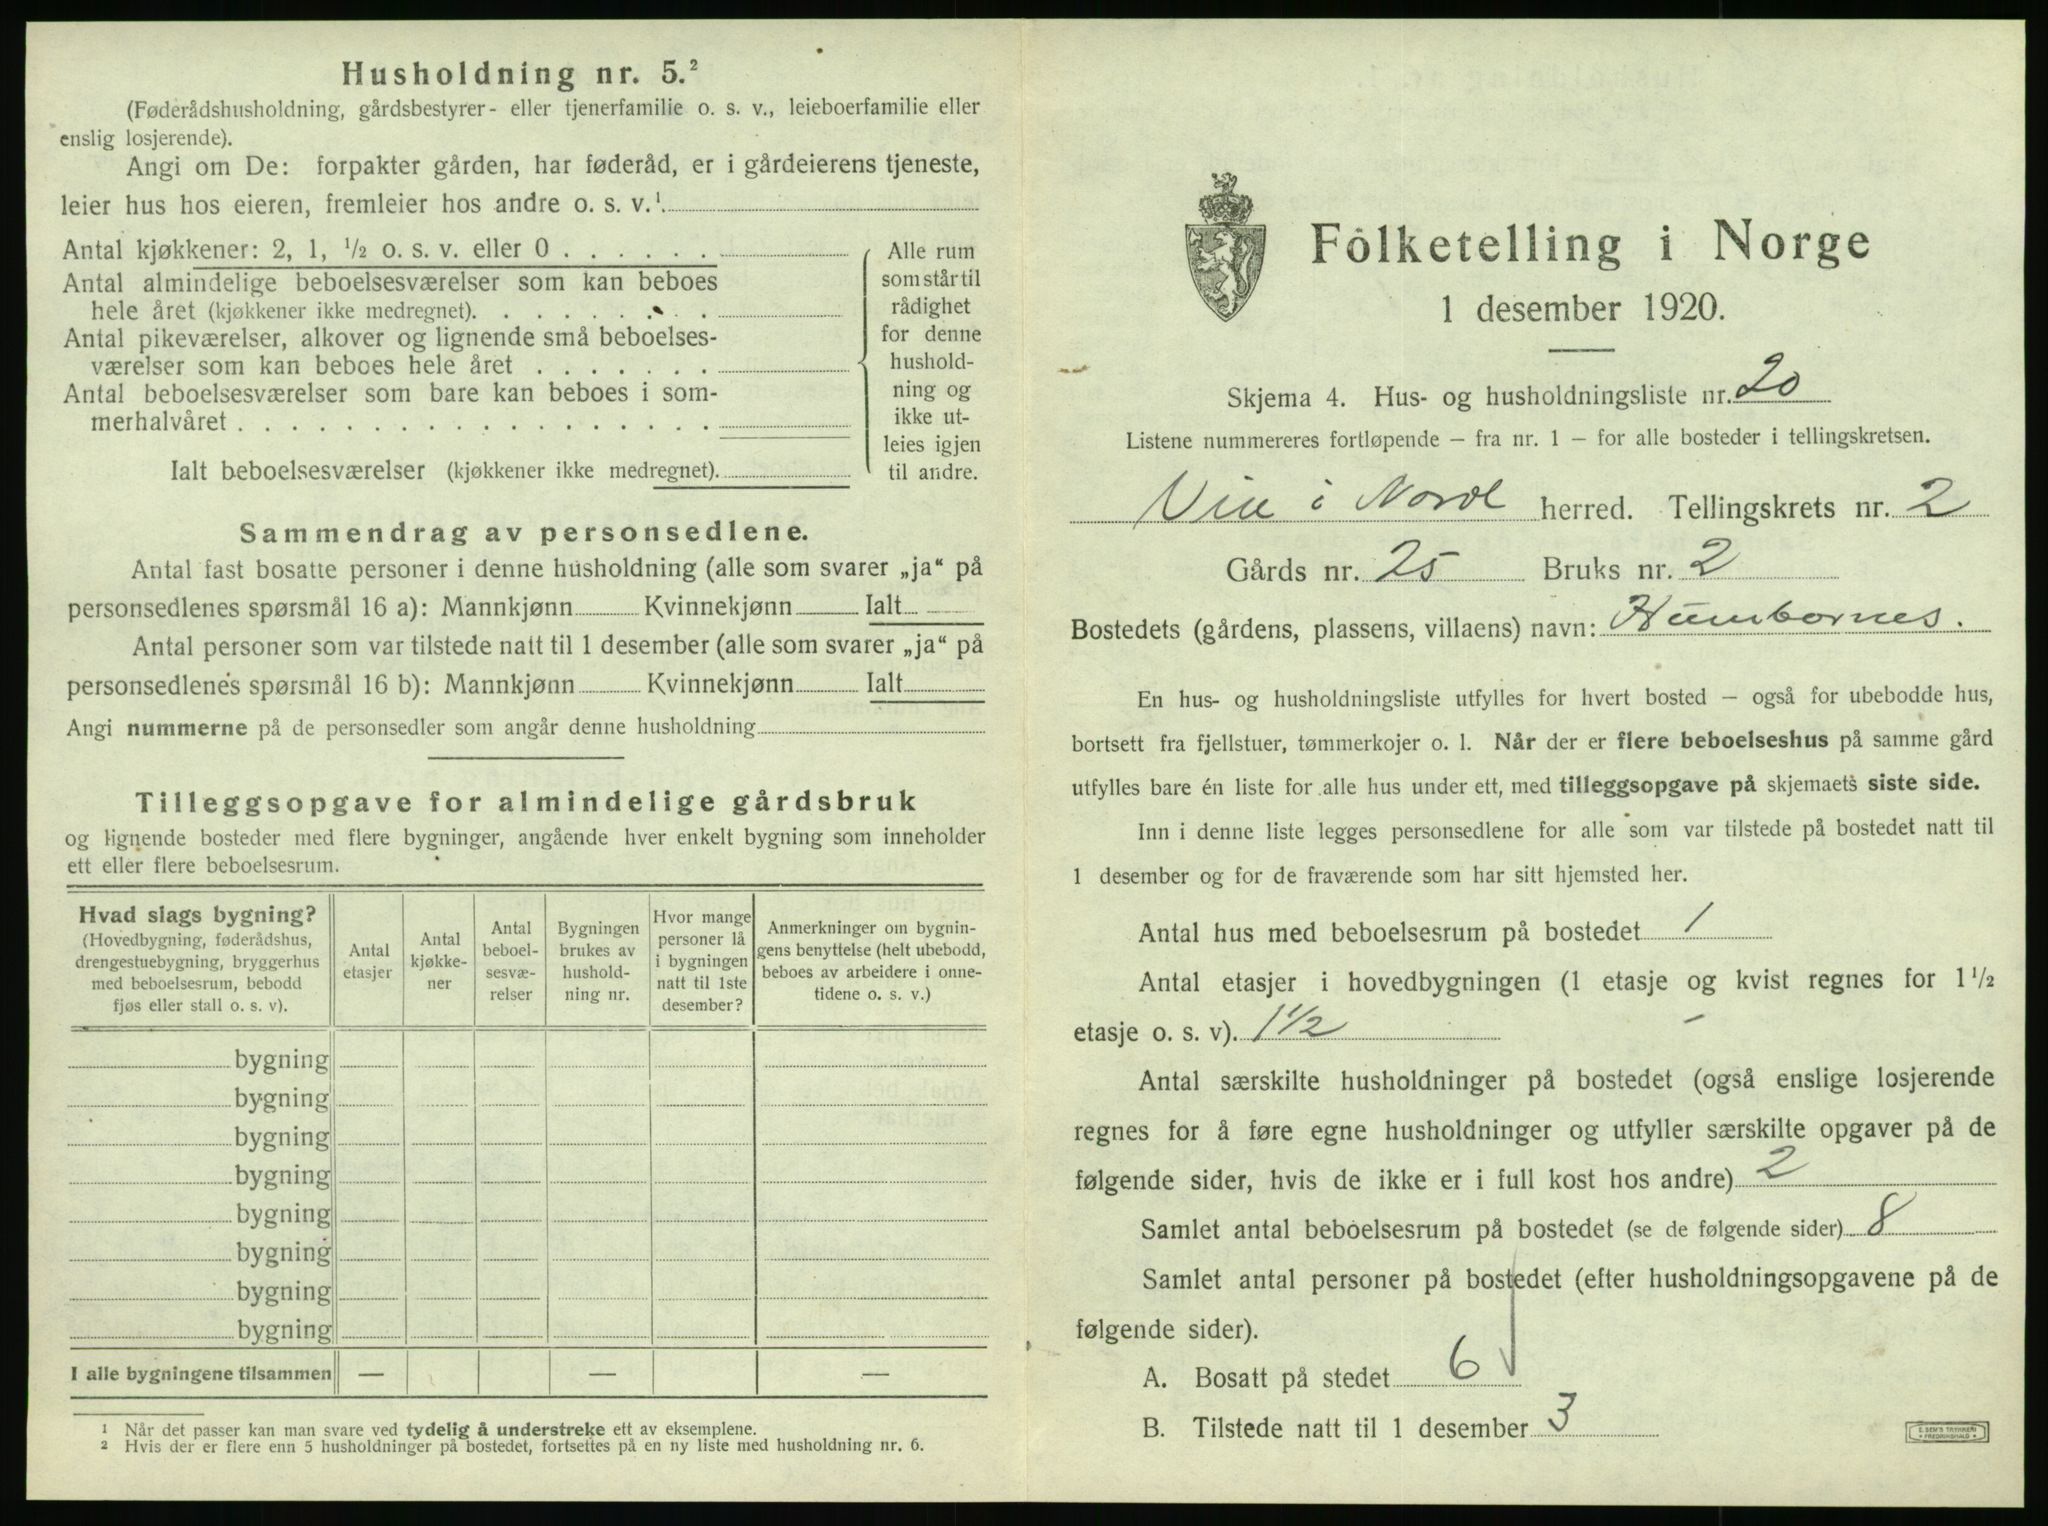 Husholdning nr. 5.²
(Føderådshusholdning, gårdsbestyrer- eller tjenerfamilie o. s. v., leieboerfamilie eller
enslig losjerende).
Angi om De: forpakter gården, har føderåd, er i gårdeierens tjeneste,
leier hus hos eieren, fremleier hos andre o. s. v.¹
Antal kjøkkener: 2, 1, ½ o. s. v. eller 0 . . . . . .
Antal almindelige beboelsesværelser som kan beboes
hele året (kjøkkener ikke medregnet). . . . . . . .
Antal pikeværelser, alkover og lignende små beboelses-
værelser som kan beboes hele året . . . . . . .
Antal beboelsesværelser som bare kan beboes i som-
merhalvåret . . . . . . . . . . . . . . . . . .
Ialt beboelsesværelser (kjøkkener ikke medregnet).
Alle rum
som står til
rådighet
for denne
hushold-
ning og
ikke ut-
leies igjen
til andre.
Sammendrag av personsedlene.
Antal fast bosatte personer i denne husholdning (alle som svarer „ja“ på
personsedlenes spørsmål 16 a): Mannkjønn Kvinnekjønn Ialt
Antal personer som var tilstede natt til 1 desember (alle som svarer „ja“ på
personsedlenes spørsmål 16 b): Mannkjønn Kvinnekjønn Ialt
Angi nummerne på de personsedler som angår denne husholdning
Tilleggsopgave for almindelige gårdsbruk
og lignende bosteder med flere bygninger, angående hver enkelt bygning som inneholder
ett eller flere beboelsesrum.
Hvad slags bygning?
(Hovedbygning, føderådshus,
drengestuebygning, bryggerhus
med beboelsesrum, bebodd
fjøs eller stall o. s. v).
Antal
etasjer
Antal
kjøkke-
ner
Antal
beboel-
sesvæ-
relser
Bygningen
brukes av
hushold-
ning nr.
Hvor mange
personer lå
i bygningen
natt til 1ste
desember?
Anmerkninger om bygnin-
gens benyttelse (helt ubebodd,
beboes av arbeidere i onne-
tidene o. s. v.)
bygning
bygning
bygning
bygning
bygning
bygning
bygning
bygning
I alle bygningene tilsammen — — —
¹ Når det passer kan man svare ved tydelig å understreke ett av eksemplene.
² Hvis der er flere enn 5 husholdninger på bostedet, fortsettes på en ny liste med husholdning nr. 6.
Folketelling i Norge
1 desember 1920.
Skjema 4. Hus- og husholdningsliste nr. 20
Listene nummereres fortløpende – fra nr. 1 – for alle bosteder i tellingskretsen.
i Nordl herred. Tellingskrets nr. 2
Gårds nr. 25 Bruks nr. 2
Bostedets (gårdens, plassens, villaens) navn: Humbornes.
En hus- og husholdningsliste utfylles for hvert bosted – også for ubebodde hus,
bortsett fra fjellstuer, tømmerkojer o. l. Når der er flere beboelseshus på samme gård
utfylles bare én liste for alle hus under ett, med tilleggsopgave på skjemaets siste side.
Inn i denne liste legges personsedlene for alle som var tilstede på bostedet natt til
1 desember og for de fraværende som har sitt hjemsted her.
Antal hus med beboelsesrum på bostedet 1
Antal etasjer i hovedbygningen (1 etasje og kvist regnes for 1½
etasje o. s. v). 1½
Antal særskilte husholdninger på bostedet (også enslige losjerende
regnes for å føre egne husholdninger og utfyller særskilte opgaver på de
følgende sider, hvis de ikke er i full kost hos andre) 2
Samlet antal beboelsesrum på bostedet (se de følgende sider) 8
Samlet antal personer på bostedet (efter husholdningsopgavene på de
følgende sider).
A. Bosatt på stedet 6
B. Tilstede natt til 1 desember 3
E. SEM'S TRYKKERI
FREDRIKSHALD